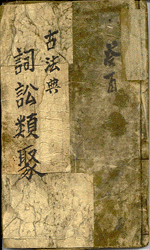 古法典
詞訟類聚